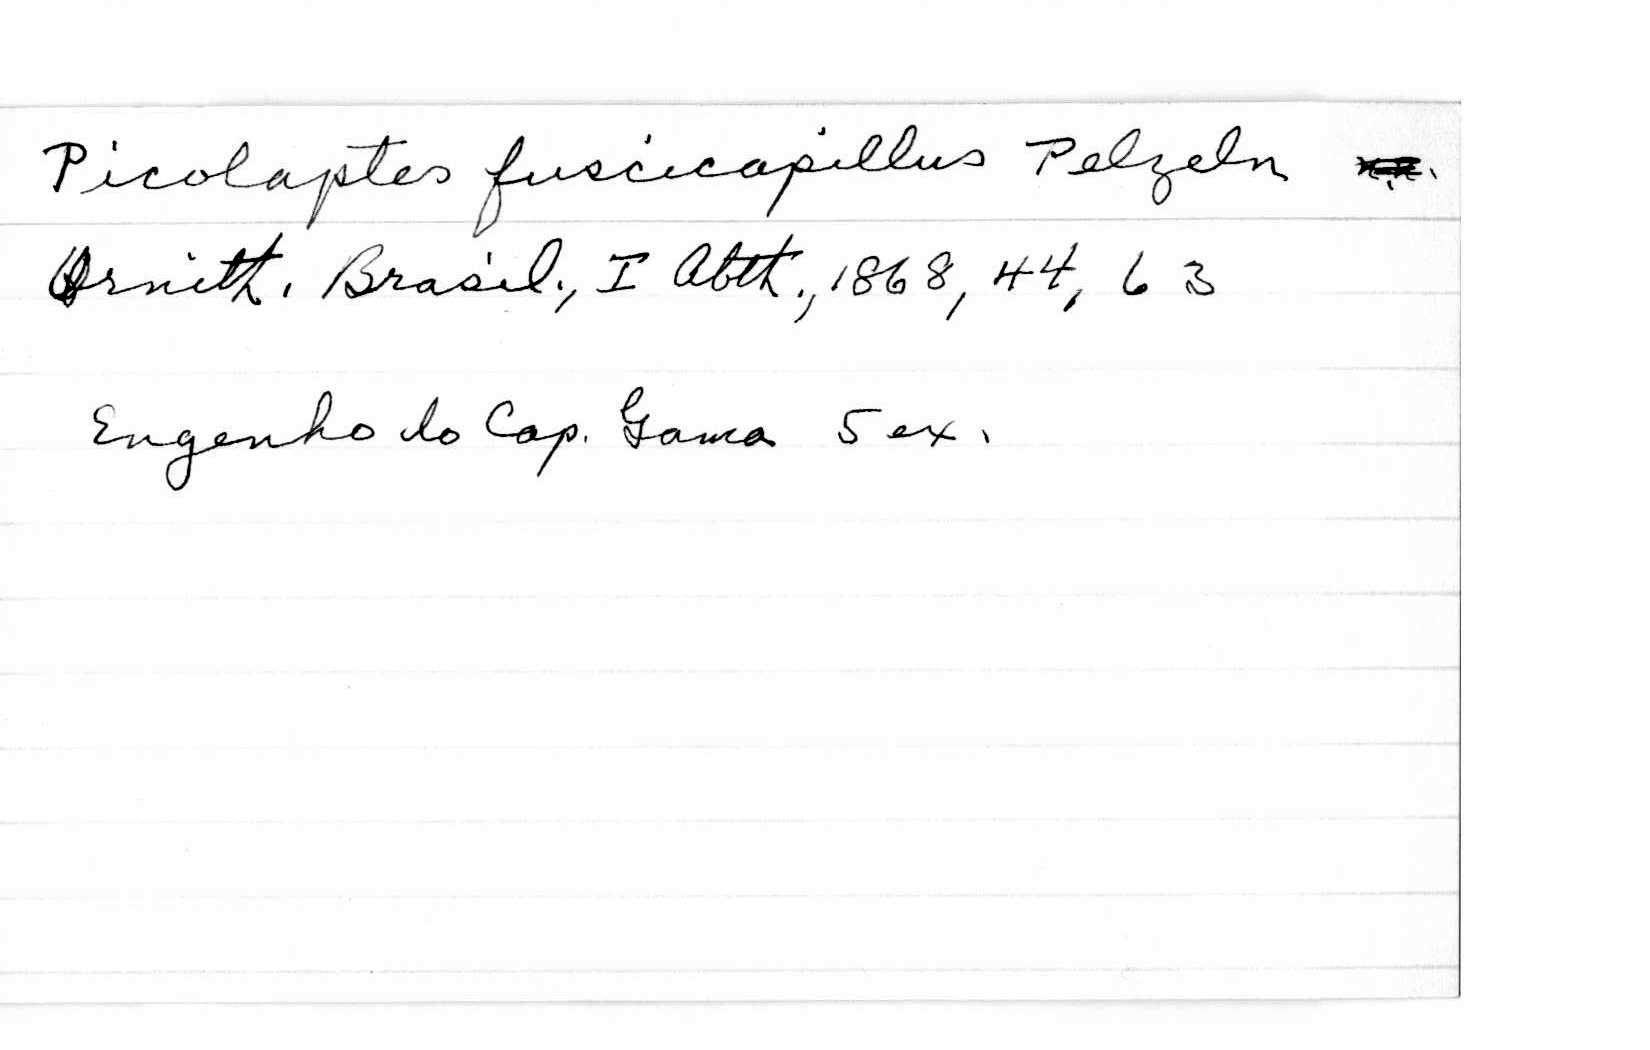 Picolaptes fuscicapillus Pelzeln
Ornith. Brasil., I Abth., 1868, 44, 63
Engenho do Cap. Gama 5 ex.